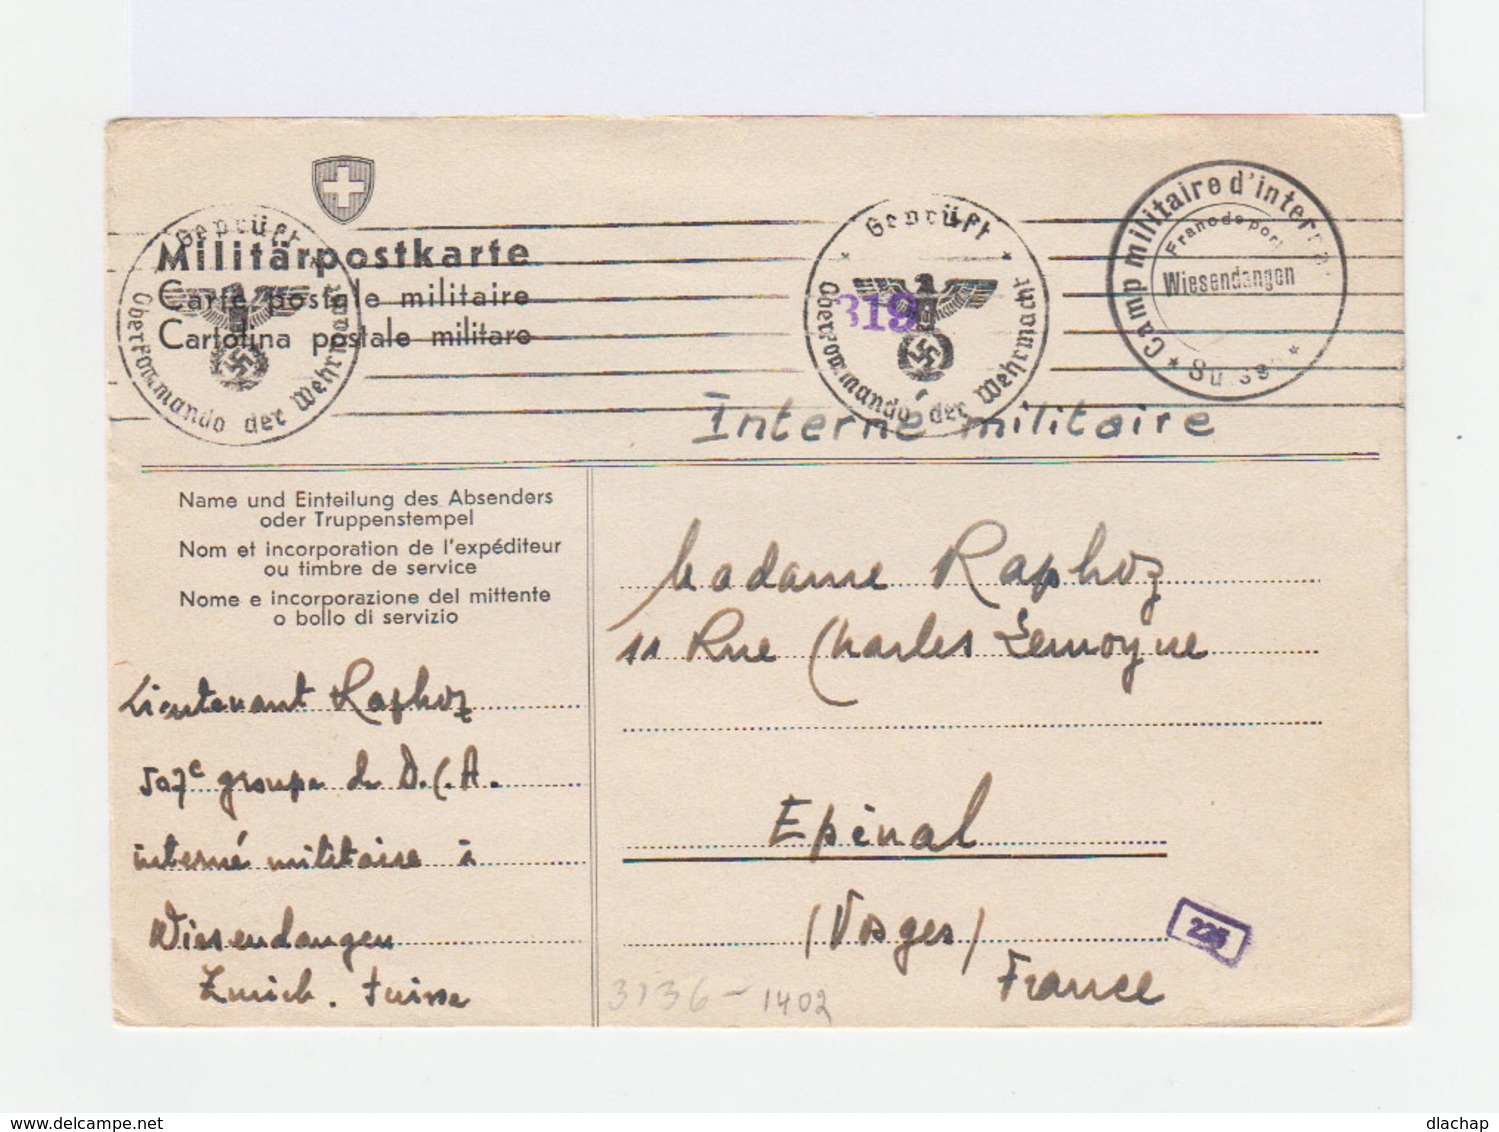 Militärpostkarte
Carte postale militaire
Cartolina postale militare
Geprüft
Oberkommando der Wehrmacht
Geprüft
Oberkommando der Wehrmacht
319
Camp militaire d'intern
Franc de port
Wiesendangen
* Suisse *
Interné militaire
Name und Einteilung des Absenders
oder Truppenstempel
Nom et incorporation de l'expéditeur
ou timbre de service
Nome e incorporazione del mittente
o bollo di servizio
Lieutenant Raphoz
507e groupe de D.C.A.
interné militaire à
Wiesendangen
Zurich. Suisse
Madame Raphoz
11 Rue Charles Lemoyne
Epinal
(Vosges)
France
225
3136-1402
delcampe.net
dlachap